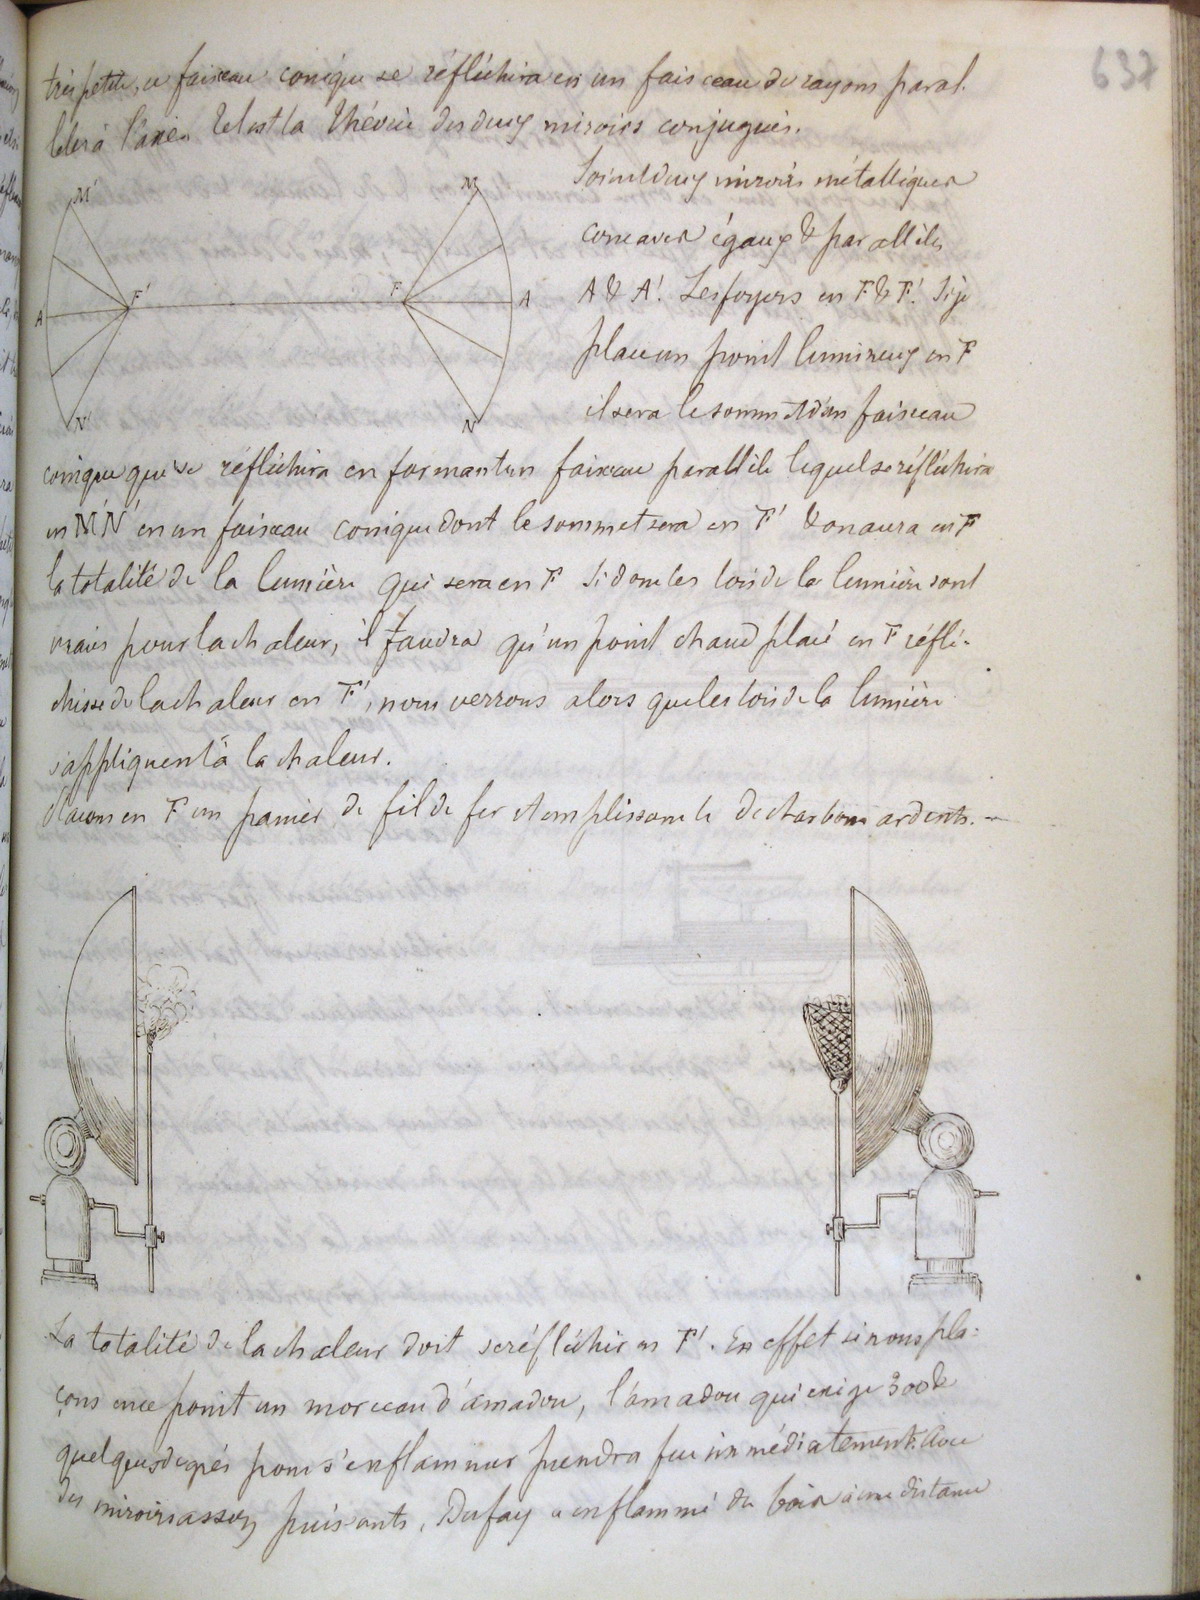 637
très petite, ce faisceau conique se réfléchira en un faisceau de rayons paral.
lèles à l'axe. Telest la théorie des deux miroirs conjugués.
Soient deux miroirs métalliques
concaves égaux & parallèles
A & A'. Les foyers en F & F'. Si je
place un point lumineux en F
il sera le sommet d'un faisceau
M'
M
F'
F
A
A
N'
N
conique qui se réfléchira en formant un faisceau parallèle lequel se réfléchira
en M'N' en un faisceau conique dont le sommet sera en F' & on aura en F
la totalité de la lumière qui sera en F Si donc les lois de la lumière sont
vraies pour la chaleur, il faudra qu'un point chaud placé en F réflé-
chisse de la chaleur en F', nous verrons alors que les lois de la lumière
s'appliquent à la chaleur.
Plaçons en F un panier de fil de fer & emplissons le de charbons ardents. -
La totalité de la chaleur doit se réfléchir en F'. En effet si nous pla-
çons en ce point un morceau d'amadou, l'amadou qui exige 300 &
quelques degrés pour s'enflammer prendra feu immédiatement. Avec
des miroirs assez puissants, Dufay a enflammé du bois à une distance